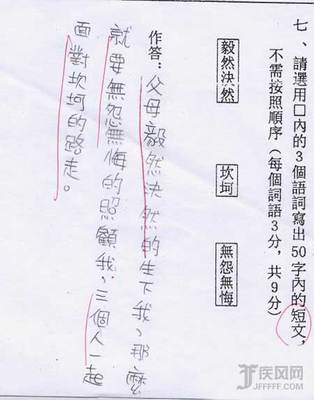 七、請選用囗內的3個語詞寫出50字內的短文，
不需按照順序（每個詞語3分，共9分）
毅然決然
坎坷
無怨無悔
作答：父母毅然決然的生下我，那麼
就要無怨無悔的照顧我，三個人一起
面對坎坷的路走。
疾风网
JFFFFF.COM